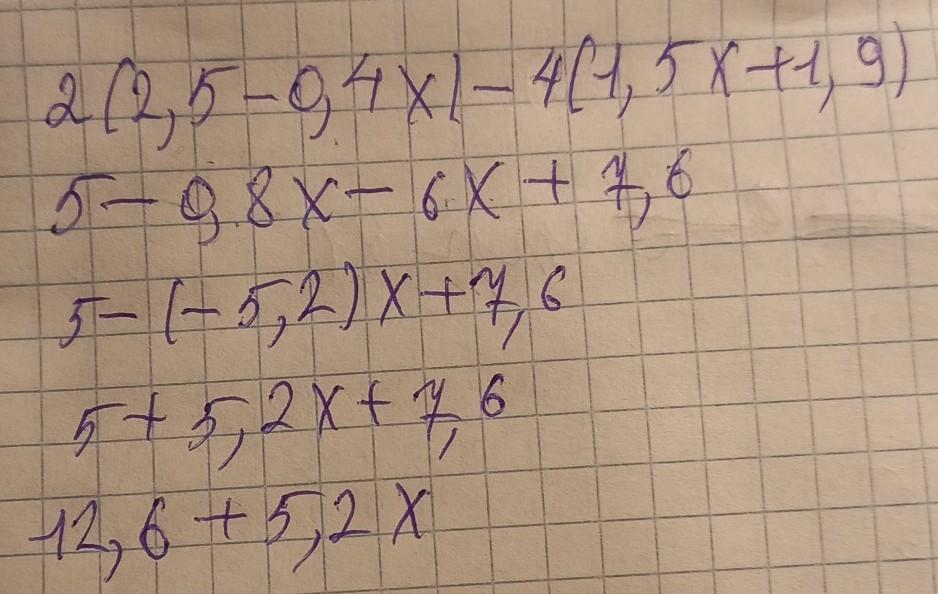 2(2,5-0,4x)-4(1,5x+1,9)
5-0,8x-6x+7,6
5-(-5,2)x+7,6
5+5,2x+7,6
12,6+5,2x